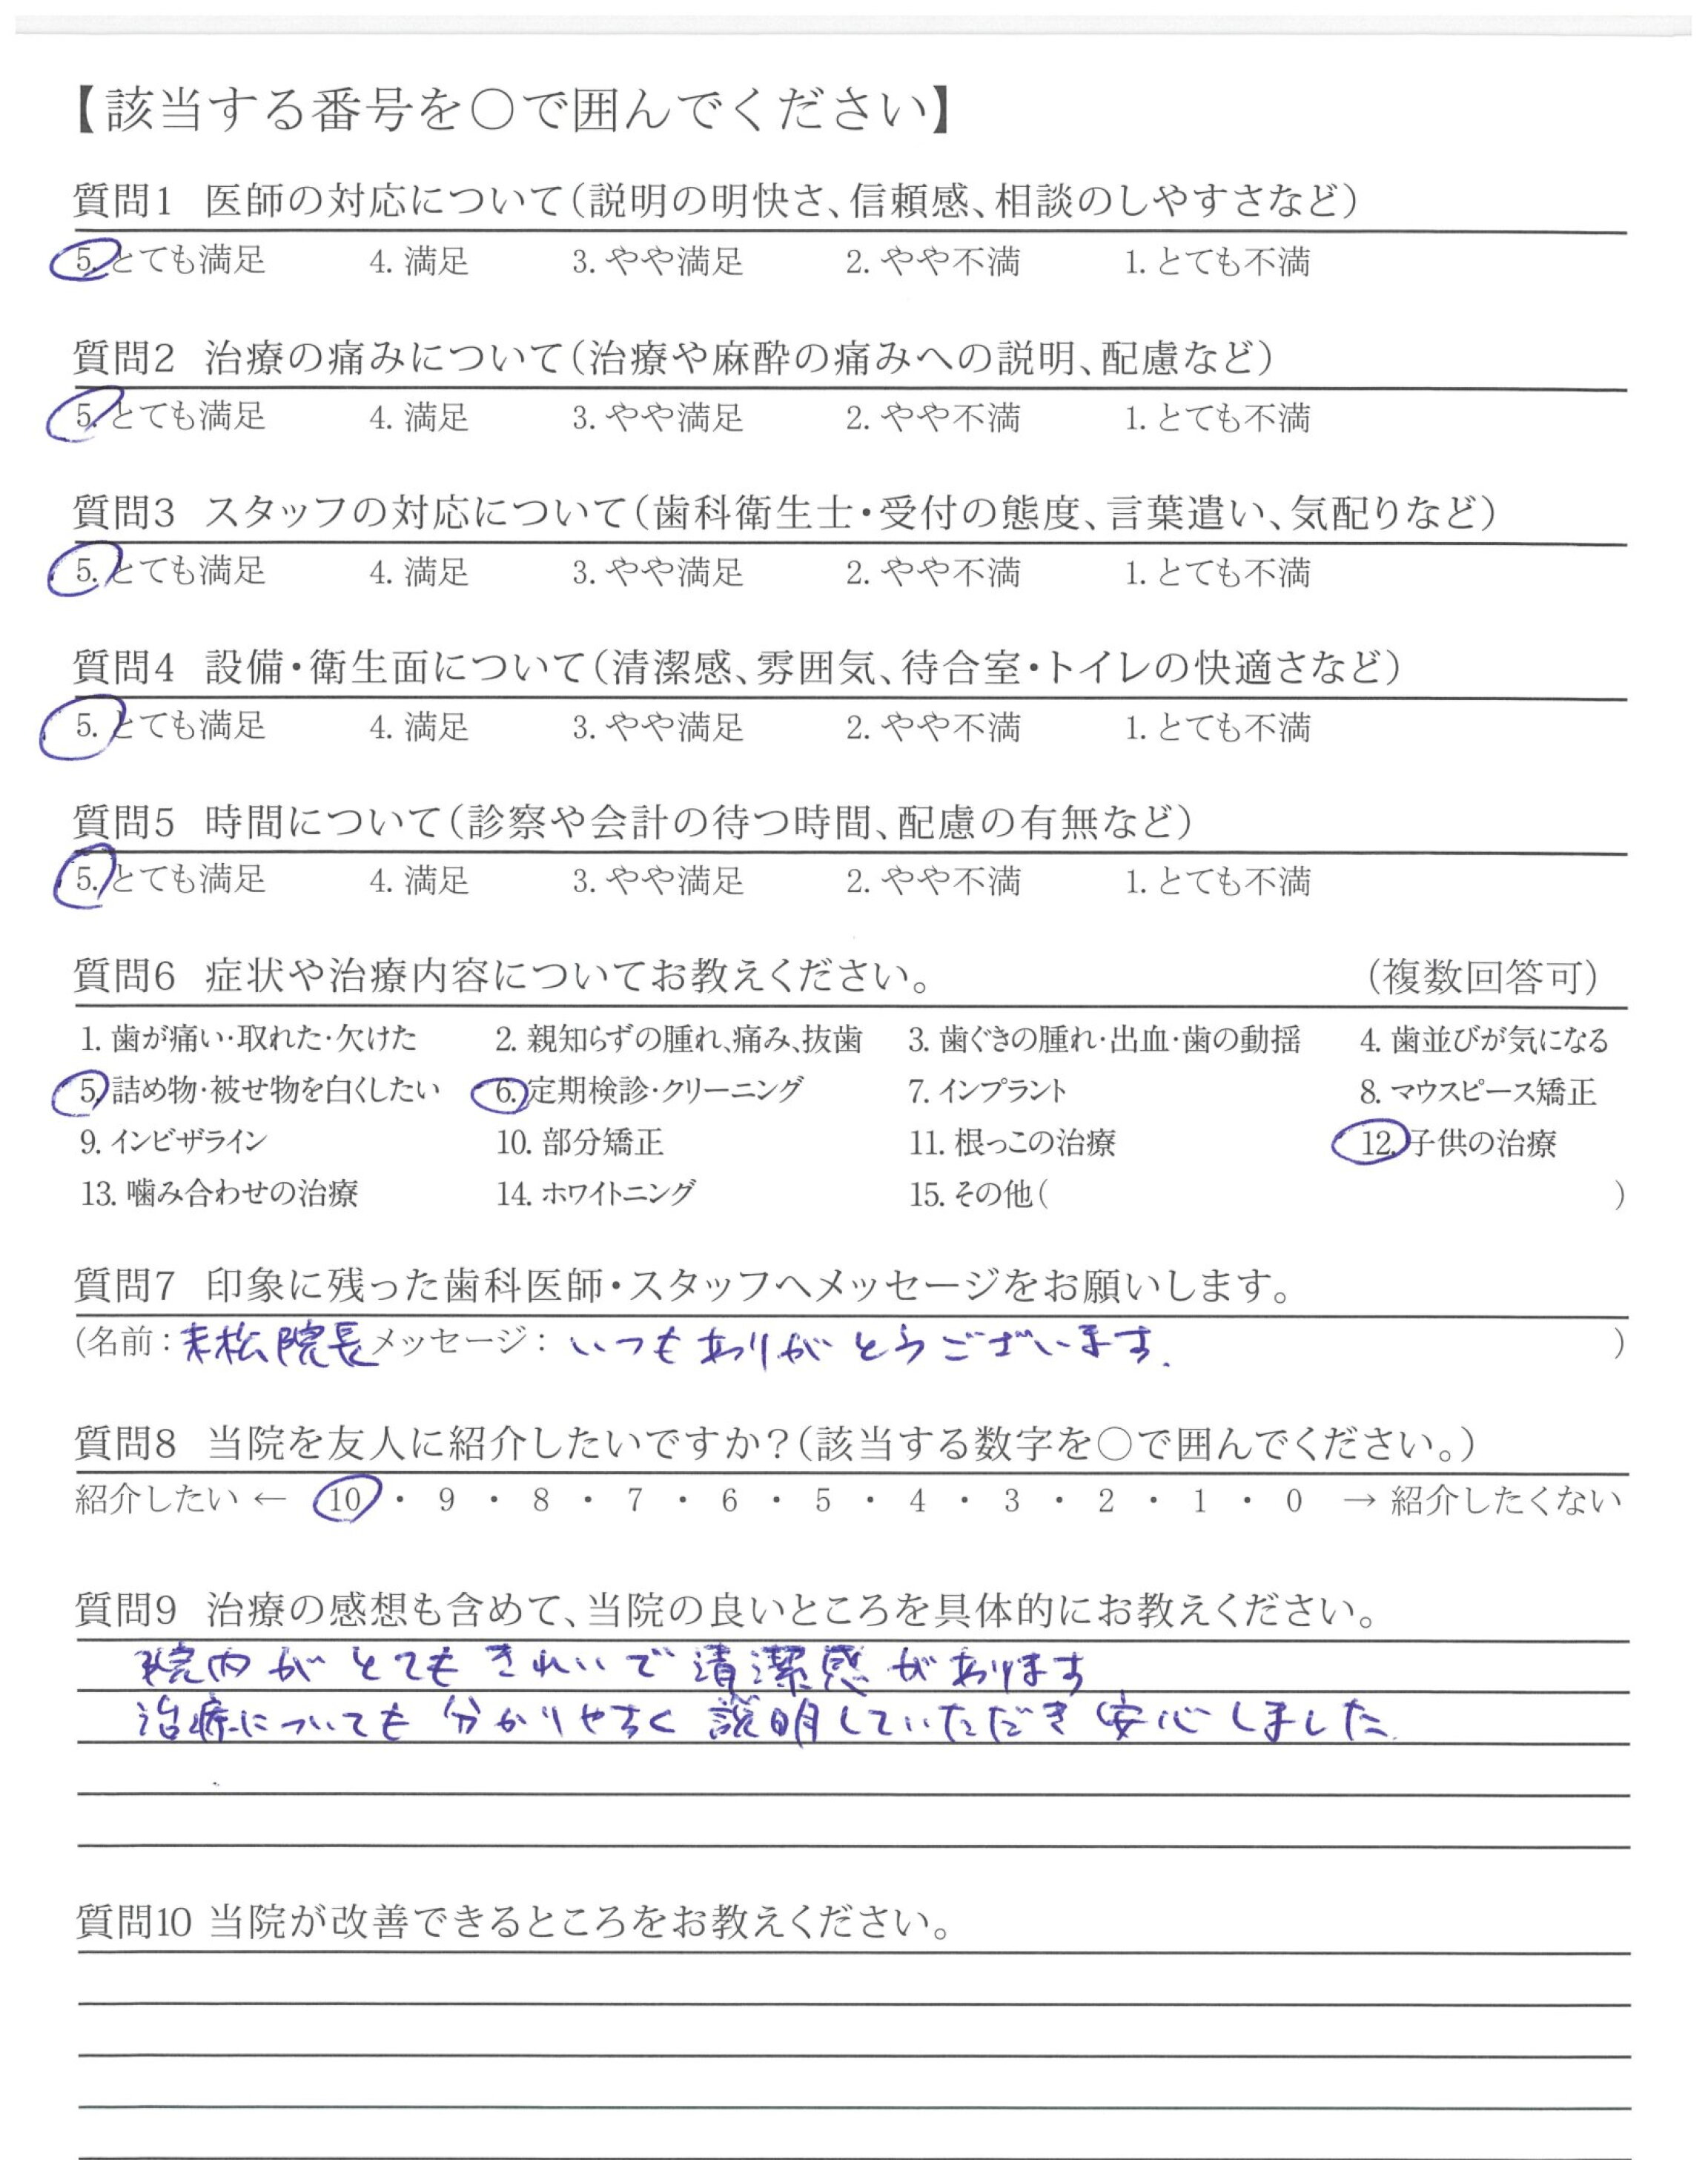 【該当する番号を○で囲んでください】
質問1 医師の対応について(説明の明快さ、信頼感、相談のしやすさなど)
5. とても満足 4. 満足 3. やや満足 2. やや不満 1. とても不満
質問2 治療の痛みについて(治療や麻酔の痛みへの説明、配慮など)
5. とても満足 4. 満足 3. やや満足 2. やや不満 1. とても不満
質問3 スタッフの対応について(歯科衛生士・受付の態度、言葉遣い、気配りなど)
5. とても満足 4. 満足 3. やや満足 2. やや不満 1. とても不満
質問4 設備・衛生面について(清潔感、雰囲気、待合室・トイレの快適さなど)
5. とても満足 4. 満足 3. やや満足 2. やや不満 1. とても不満
質問5 時間について(診察や会計の待つ時間、配慮の有無など)
5. とても満足 4. 満足 3. やや満足 2. やや不満 1. とても不満
質問6 症状や治療内容についてお教えください。 (複数回答可)
1. 歯が痛い・取れた・欠けた 2. 親知らずの腫れ、痛み、抜歯 3. 歯ぐきの腫れ・出血・歯の動揺 4. 歯並びが気になる
5. 詰め物・被せ物を白くしたい 6. 定期検診・クリーニング 7. インプラント 8. マウスピース矯正
9. インビザライン 10. 部分矯正 11. 根っこの治療 12. 子供の治療
13. 噛み合わせの治療 14. ホワイトニング 15. その他( )
質問7 印象に残った歯科医師・スタッフへメッセージをお願いします。
(名前:末松院長 メッセージ: いつもありがとうございます. )
質問8 当院を友人に紹介したいですか?(該当する数字を○で囲んでください。)
紹介したい ← 10 ・ 9 ・ 8 ・ 7 ・ 6 ・ 5 ・ 4 ・ 3 ・ 2 ・ 1 ・ 0 → 紹介したくない
質問9 治療の感想も含めて、当院の良いところを具体的にお教えください。
院内がとてもきれいで清潔感があります
治療についても分かりやすく説明していただき安心しました.
質問10 当院が改善できるところをお教えください。